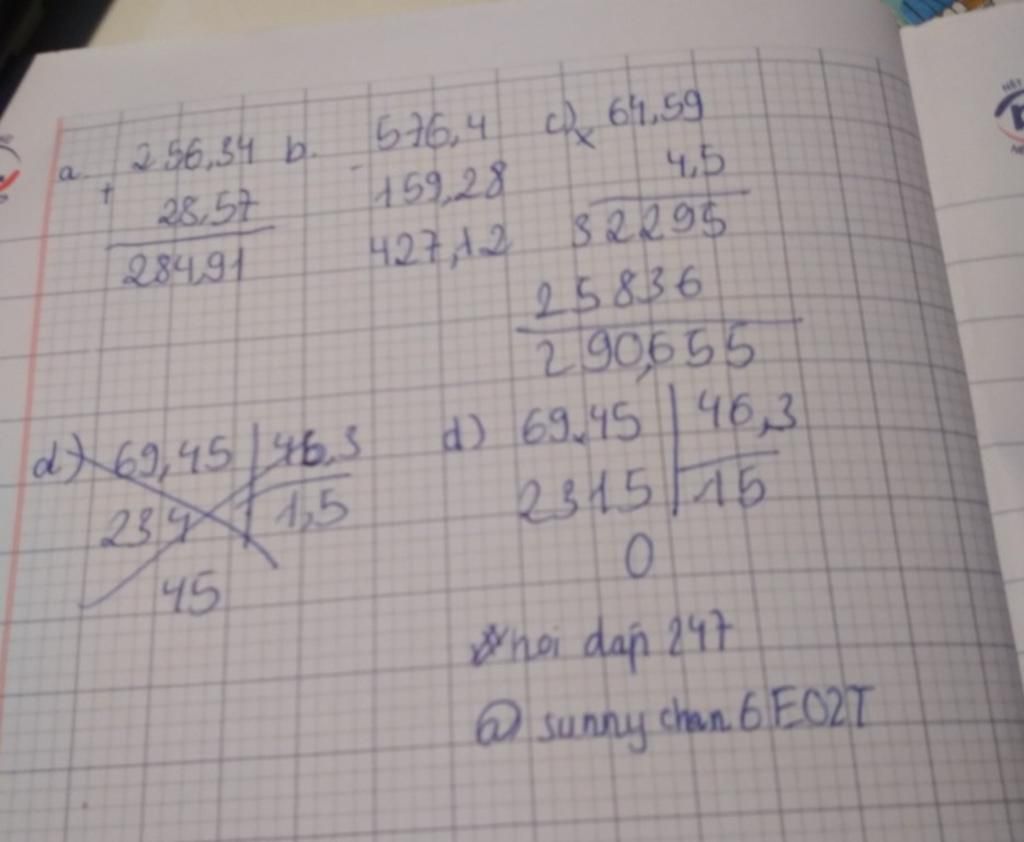 a. 256,34
+
28,57
28491
b. 576,4
-
159,28
427,12
c) 64,59
x
4,5
32295
25836
290,655
d) 69,45 46,3
234 1,5
45
d) 69,45 46,3
2315 15
0
* hoi dap 247
@ sunny chan 6E02T